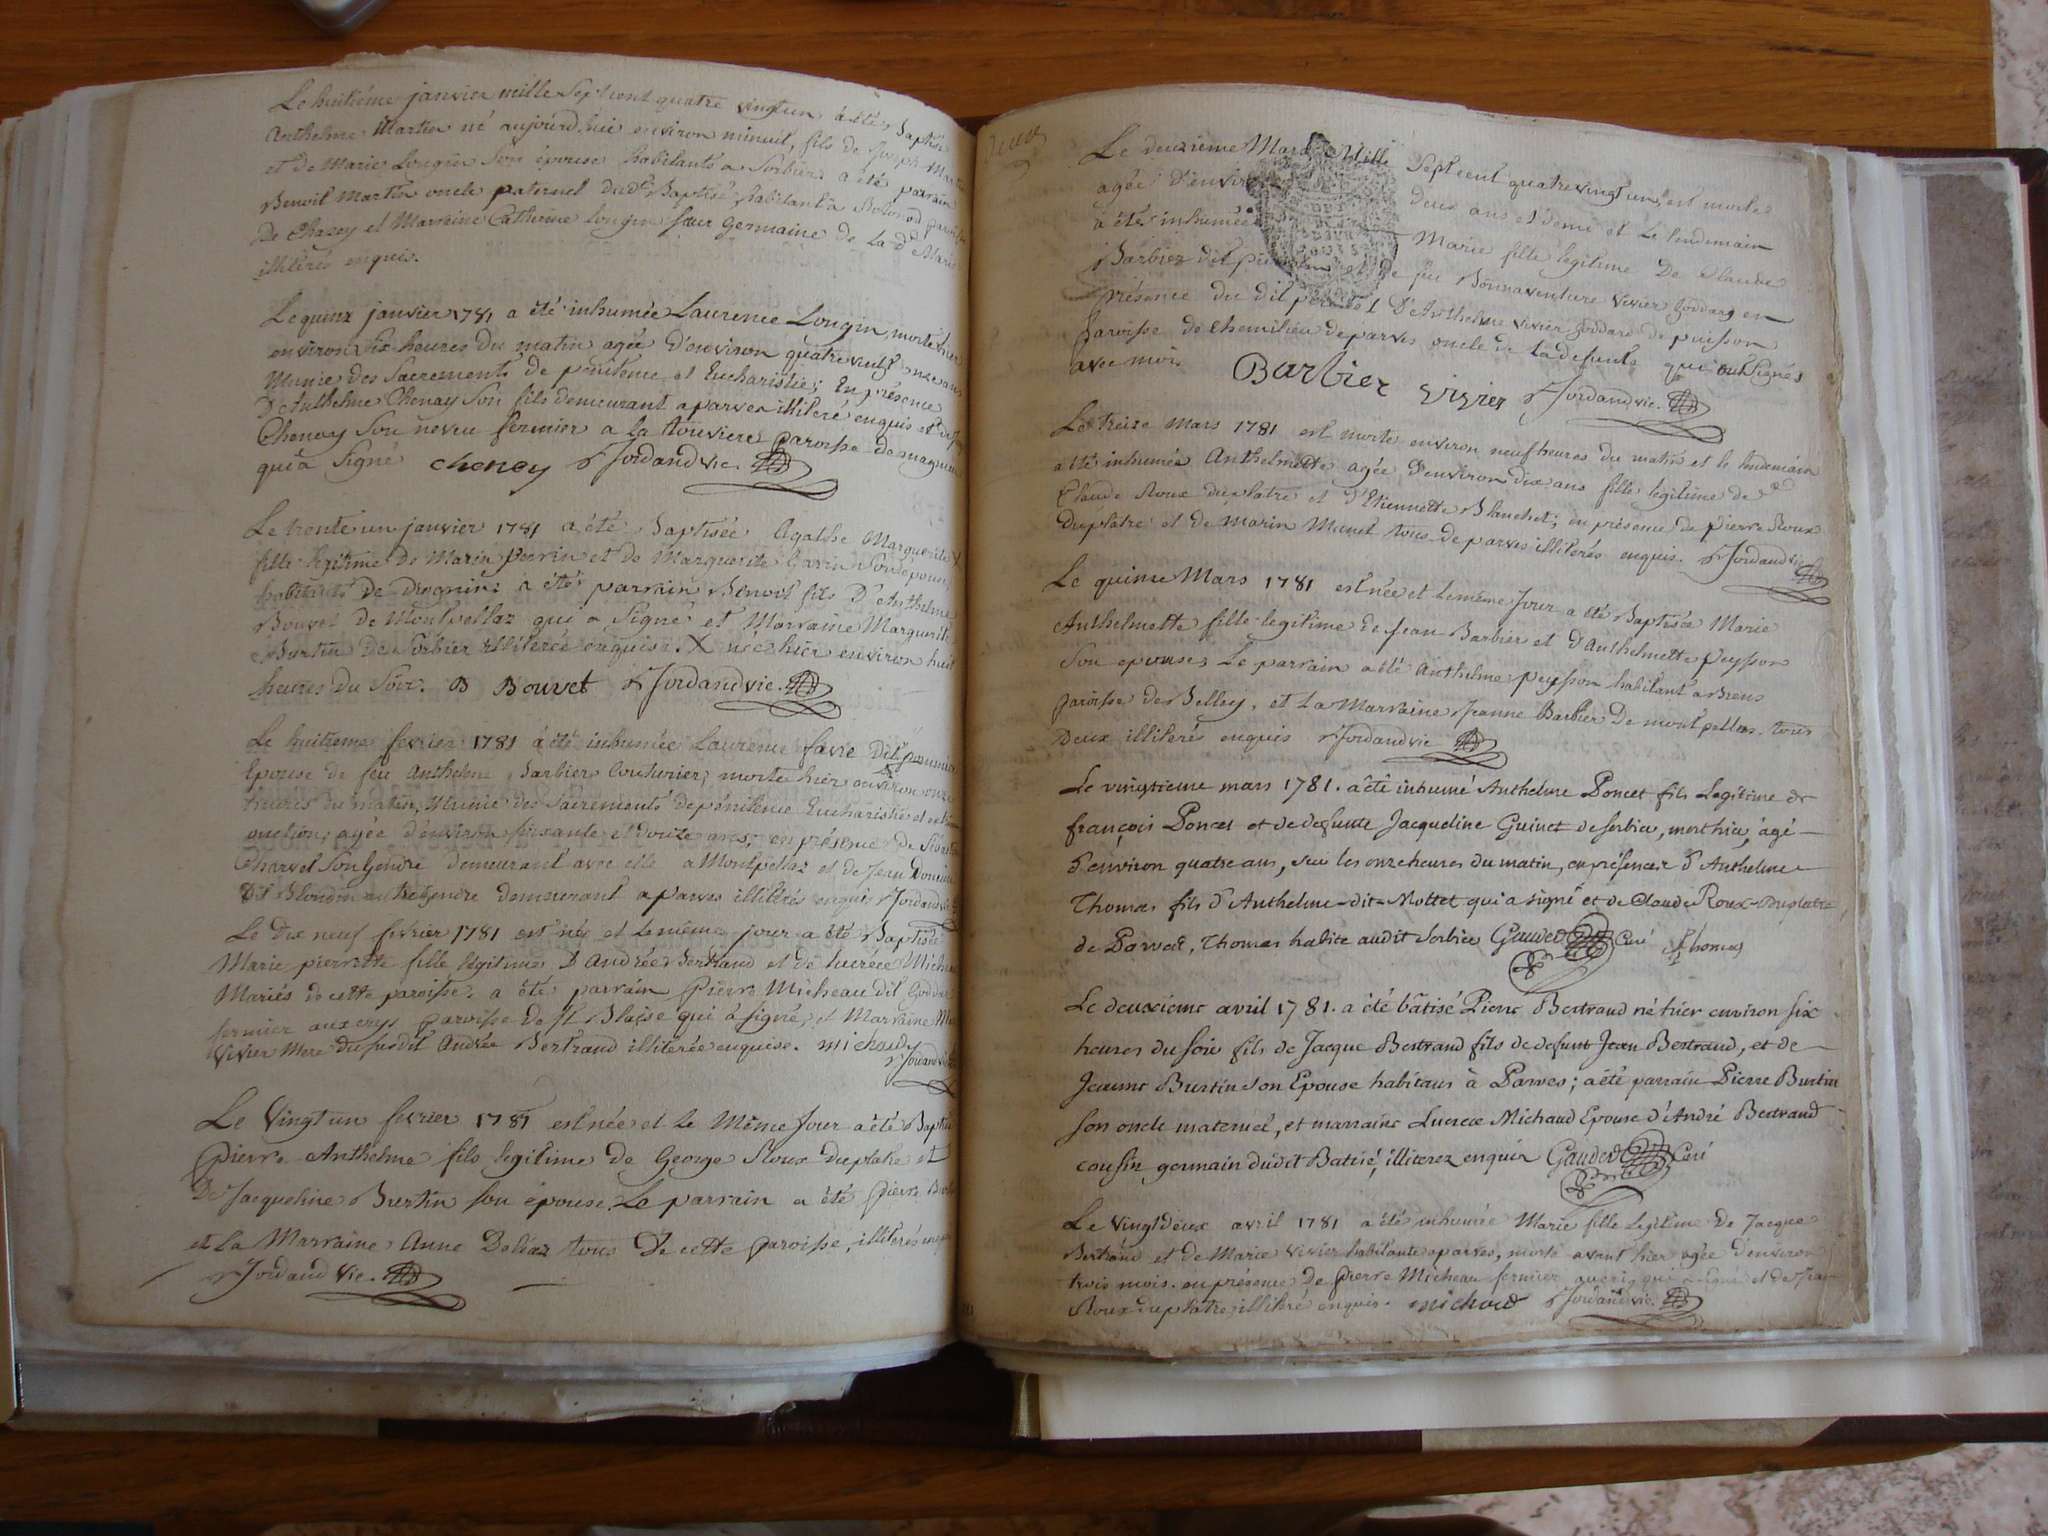 Le huitiéme janvier mille Sept cent quatre vingt un à été Baptisé
Anthelme Martin né aujourd'hui environ minuit, fils de Joseph Martin
et de Marie Longin Son épouse habitants a Sorbier a été parrain
Benoit Martin oncle paternel dudt Baptisé habitant a
De Chazey et Marraine Catherine Longin sœur Germaine de la dt Marie
illiterés enquis.
Le quinz janvier 1781 a été inhumée Laurence Longin, morte hier
environ six heures du matin agée d'environ quatre vingt onze ans
Munie des Sacrements de penitence et Eucharistie; En présence
D'Anthelme Chenay Son fils demeurant a parves illiteré enquis et de
Chenay Son neveu fermier a la touviere paroisse de magnieu
qui a Signé cheney Jordand vic.
Le trente un janvier 1781 a été Baptisée Agathe Marguerite X
fille legitime de Marin Perrin et de Marguerite Gavin Son epouse
habitants de a été parrain Benoit fils D'Anthelme
Bouvet de Montpellaz qui a Signé et Marraine Marguerite
Burtin De Sorbier illiterée enquise. X née hier environ huit
heures du Soir. B Bouvet Jordand vic.
Le huitieme fevrier 1781 à été inhumée Laurence favre Dit
Epouse de feu Anthelme Barbier Couturier; morte hier environ onze
heures du matin, Munie des Sacrements de pénitence Eucharistie et extreme
onction; agée d'environ soixante et douze ans; en présence de
Charvet Son Gendre demeurant avec elle a Montpellaz et de Jean
Dit Blondin autre Gendre demeurant a parves illiterés enquis Jordand vic
Le Dix neuf fevrier 1781 est née et le même jour a été Baptisée
Marie pierrette fille légitime D'André Bertrand et de lucréce Michaud
Mariés de cette paroisse. a été parrain Pierre Micheau dit Goddard
fermier aux paroisse de St Blaise qui a signé, et Marraine
Vivier Mere du susdit Andrée Bertrand illiterée enquise. michaud
Jordand vic
Le Vingt un fevrier 1781 est née et le Même Jour a été Baptisé
Pierre Anthelme fils legitime de George Roux Duplatre et
De Jacqueline Burtin son épouse. Le parrain a été Pierre
et La Marraine Anne Deléaz tous De cette paroisse, illiterés enquis
Jordand Vic.
Deux
Le deuxième Mars Mille Sept cent quatre vingt un, est morte
agée D'environ deux ans et demi et Le lendemain
a été inhumée Marie fille legitime De Claude
Barbier dit et De feu Bonnaventure Vivier Goddard en
présence du dit et D'Anthelme Vivier Goddard de peisson
paroisse de Chemilieu de parves oncle de la defunte qui ont Signés
avec moi. Barbier vivier Jordand vic.
Le treize mars 1781 est morte environ neuf heures du matin et le lendemain
a été inhumée Anthelmette agée d'environ dix ans fille legitime de
Claude Roux duplatre et d'Etiennette Blanchet; en présence de pierre Roux
Duplatre et de Marin Munet tous de parves illiterés enquis. Jordand vic
Le quinze Mars 1781 est née et le même Jour a été Baptisée Marie
Anthelmette fille legitime de Jean Barbier et d'Anthelmette Peysson
Son epouse; Le parrain a été Anthelme Peysson habitant a Brens
paroisse de Belley, et La Marraine Jeanne Barbier De montpellas. tous
deux illiterés enquis Jordand vic
Le vingtieme mars 1781. a été inhumé Anthelme Poncet fils Legitime de
françois Poncet et de defunte Jacqueline Guinet de sorbier, mort hier, agé
d'environ quatre ans, sur les onze heures du matin, en présence d'Anthelme
Thomas fils d'Anthelme dit Mottet qui a signé et de Claude Roux-Duplatre
de Parves, Thomas habite audit Sorbier Gaudet Curé Thomas
Le deuxieme avril 1781. a été bâtisé Pierre Bertrand né hier environ six
heures du soir fils de Jacque Bertrand fils de defunt Jean Bertrand, et de
Jeanne Burtin son Epouse habitans à Parves; a été parrain Pierre Burtin
son oncle maternel, et marraine Lucrece Michaud Epouse d'André Bertrand
cousin germain dudit Batisé, illiterez enquis Gaudet Curé
Le Vingt deux avril 1781 a été inhumée Marie fille Legitime De Jacque
Bertrand et de Marie Vivier habitants a parves, morte avant hier agée d'environ
trois mois. en présence De Pierre Micheau fermier qui a signé et de Jean
Roux duplatre, illiteré enquis. michaud Jordand vic.